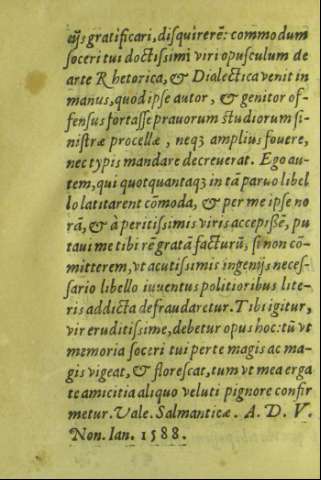 ijs gratificari, disquirerẽ: commodum
soceri tui doctissimi viri opusculum de
arte Rhetorica, & Dialectica venit in
manus, quod ipse autor, & genitor of-
fensus fortasse prauorum studiorum si-
nistræ procellæ, neqꝫ amplius fouere,
nec typis mandare decreuerat. Ego au-
tem, qui quot quantaqꝫ in tã paruo libel
lo latitarent cõmoda, & per me ipse no
rã, & à peritissimis viris accepissẽ, pu
taui me tibi rẽ gratã facturũ, si non cõ-
mitterem, vt acutissimis ingenijs neces-
sario libello iuuentus politioribus lite-
ris addicta defraudaretur. Tibi igitur,
vir eruditissime, debetur opus hoc: tũ vt
memoria soceri tui perte magis ac ma-
gis vigeat, & florescat, tum vt mea erga
te amicitia aliquo veluti pignore confir
metur. Vale. Salmanticæ. A. D. V.
Non. Ian. 1588.